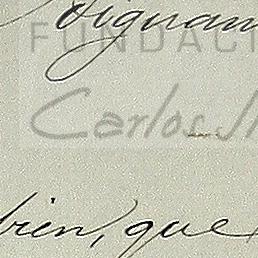 dignam
FUNDACI
Carlos
bien, que